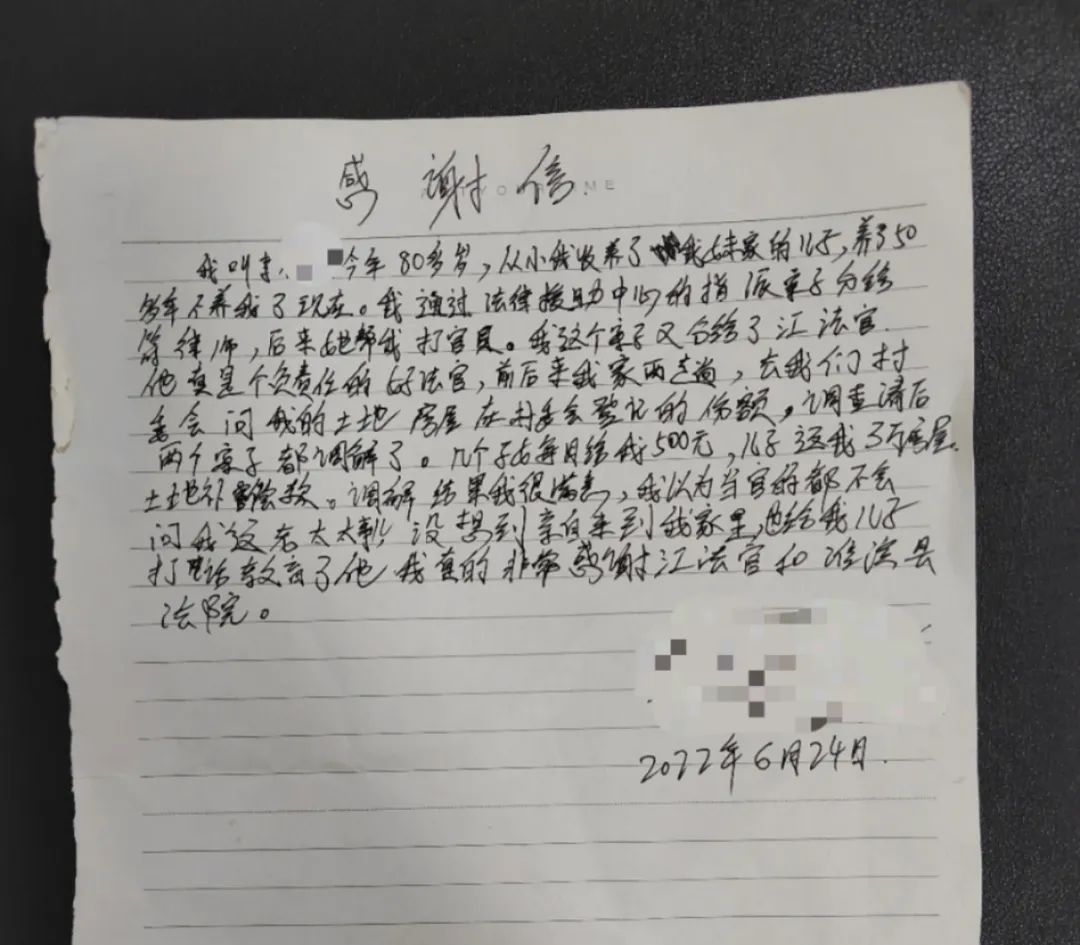 感谢信
我叫李 今年80多岁,从小我收养了我妹家的儿子,养了50
多年不养我了现在。我通过法律援助中心的指派案子分给
律师,后来她帮我打官员。我这个案子又分给了江法官.
他真是个负责任的好法官,前后来我家两趟,去我们村
委会问我的土地房屋在村委会登记的份额。调查清后
两个案子都调解了。几个子女每月给我500元,儿子返我了房屋.
土地补款。调解结果我很满意,我以为当官的都不会
问我这老太太事,没想到亲自来到我家里,也给我儿子
打电话教育了他 我真的非常感谢江法官和濉溪县
法院。
2022年6月24日.